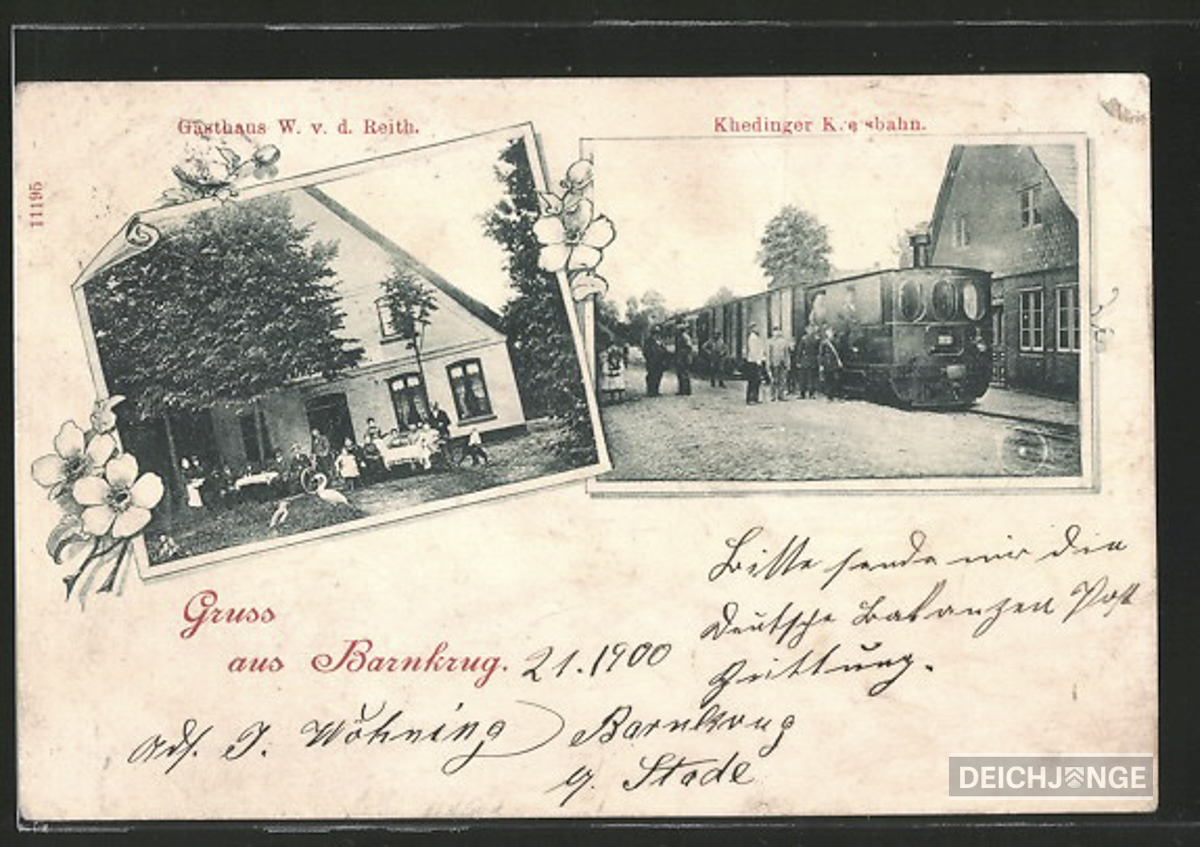 Gasthaus W. v. d. Reith.
Khedinger K. e sbahn.
11195
Bitte sende mir die
Deutsche Vakanzen Post
Zeittung.
Gruss
aus Barnkrug. 21.1900
Ads. J. Wöhning Barnkrug
b. Stade
DEICHJUNGE